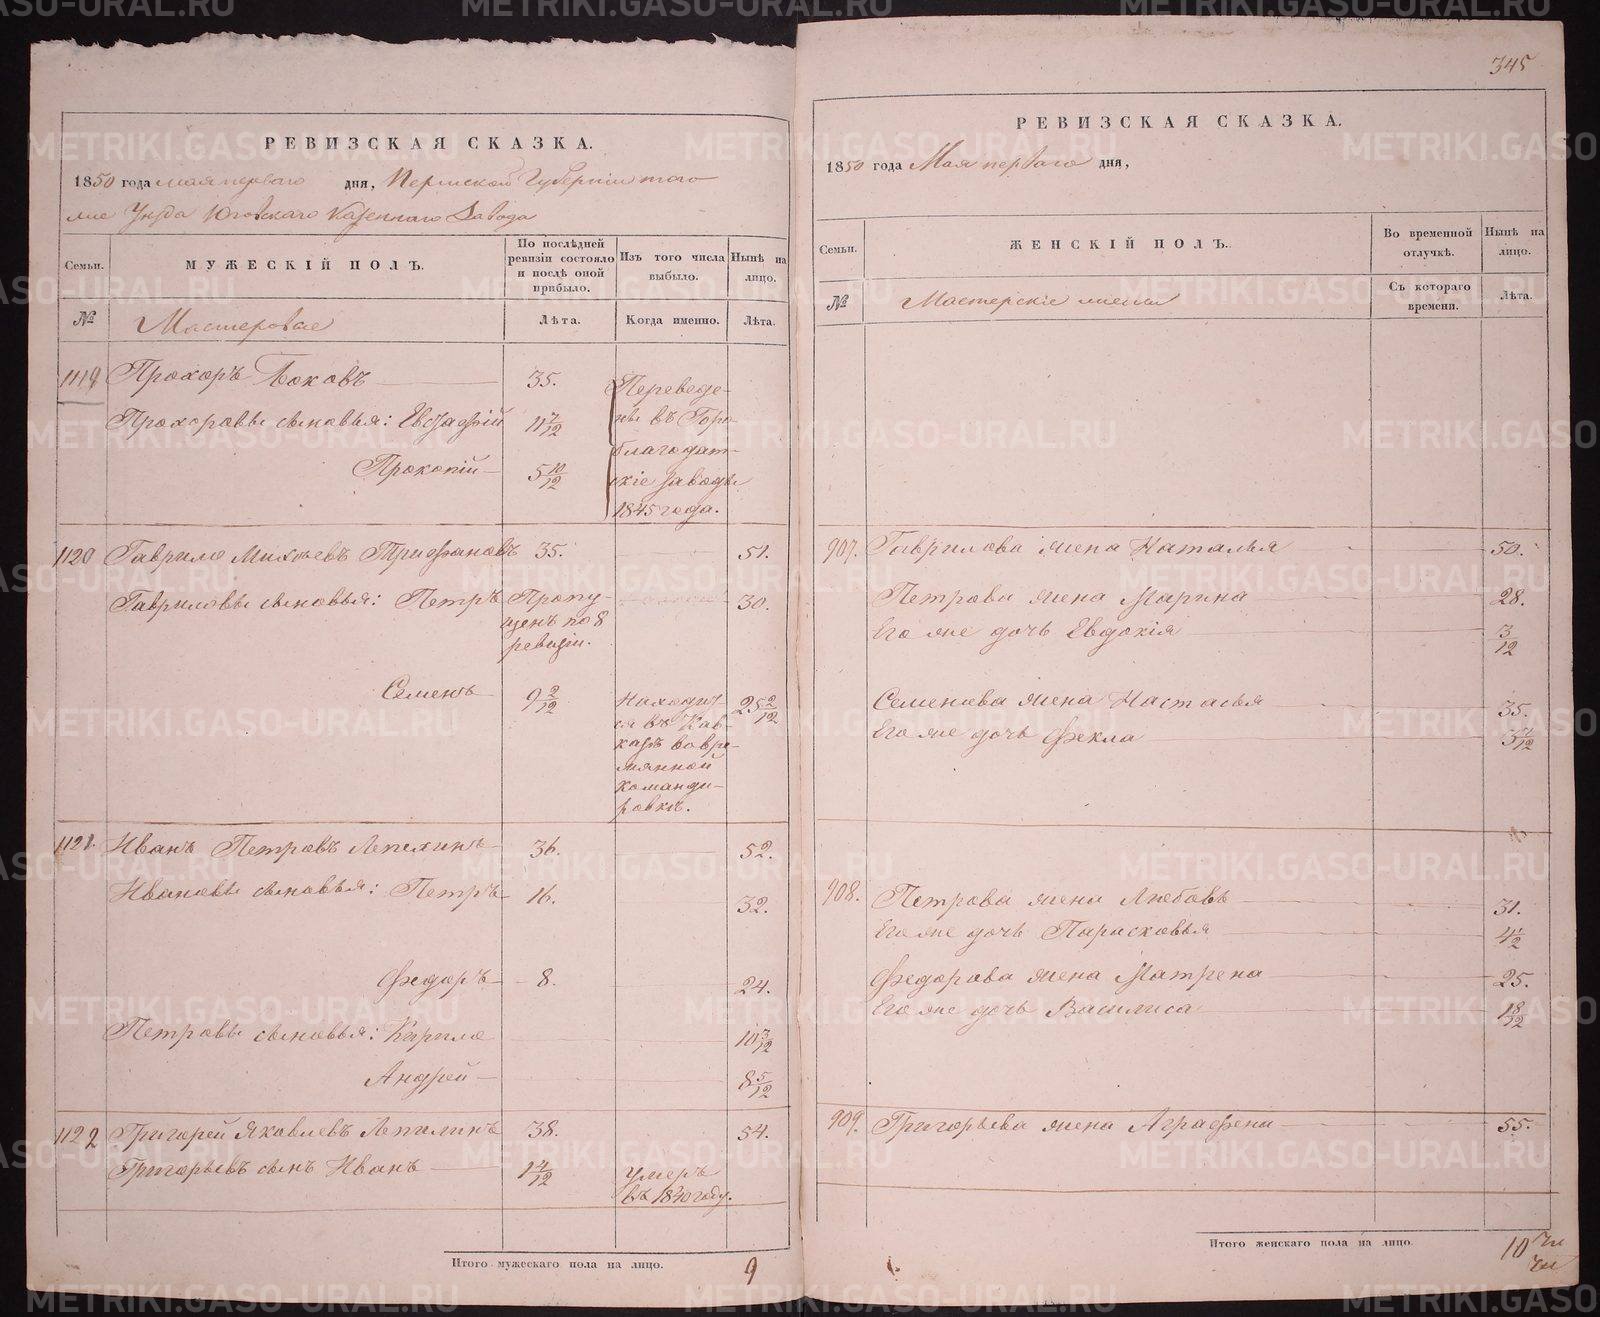 РЕВИЗСКАЯ СКАЗКА.
1850 года мая перваго дня, Пермской Губернiи того
же Уезда Юговскаго Казеннаго Завода
Семьи.
МУЖЕСКIЙ ПОЛЪ.
По послѣдней
ревизiи состояло
и послѣ оной
прибыло.
Изъ того числа
выбыло.
Нынѣ на
лицо.
№
Мастеровые
Лѣта.
Когда именно.
Лѣта.
1119 Прохоръ Боковъ 35.
Переведе-
ны въ Горо-
благодат-
скiе заводы
1845 года.
Прохоровы сыновья: Евстафiй 11 7/12
Прокопiй 5 10/12
1120 Гаврило Михѣевъ Трифановъ 35. 51.
Гавриловы сыновья: Петръ Пропу-
щенъ по 8
ревизiи.
30.
Семенъ 9 2/12
Находит-
ся въ Кав-
казѣ во вре-
мянной
командu-
ровкѣ.
25 2/12
1121. Иванъ Петровъ Лепехинъ 36. 52.
Ивановы сыновья: Петръ 16. 32.
Федоръ 8. 24.
Петровы сыновья: Кирило 10 3/12
Андрей 8 5/12
1122 Григорей Яковлевъ Лепихинъ 38. 54.
Григорьевъ сынъ Иванъ 1 4/12 Умеръ
въ 1840 году.
Итого мужескаго пола на лицо. 9
345
РЕВИЗСКАЯ СКАЗКА.
1850 года Мая перваго дня,
Семьи.
ЖЕНСКIЙ ПОЛЪ.
Во временной
отлучкѣ.
Нынѣ на
лицо.
№
Мастерскiе жены
Съ котораго
времени.
Лѣта.
907. Гаврилова жена Наталья 50.
Петрова жена Марина 28.
Его же дочь Евдокiя 3/12
Семенова жена Настасья 35.
Его же дочь Фекла
908. Петрова жена Любовь 31.
Его же дочь Парасковья 4 1/2
Федорова жена Матрена 25.
Его же дочь Василиса
909. Григорьева жена Аграфена 55.
Итого женскаго пола на лицо. 10
METRIKI.GASO-URAL.RU